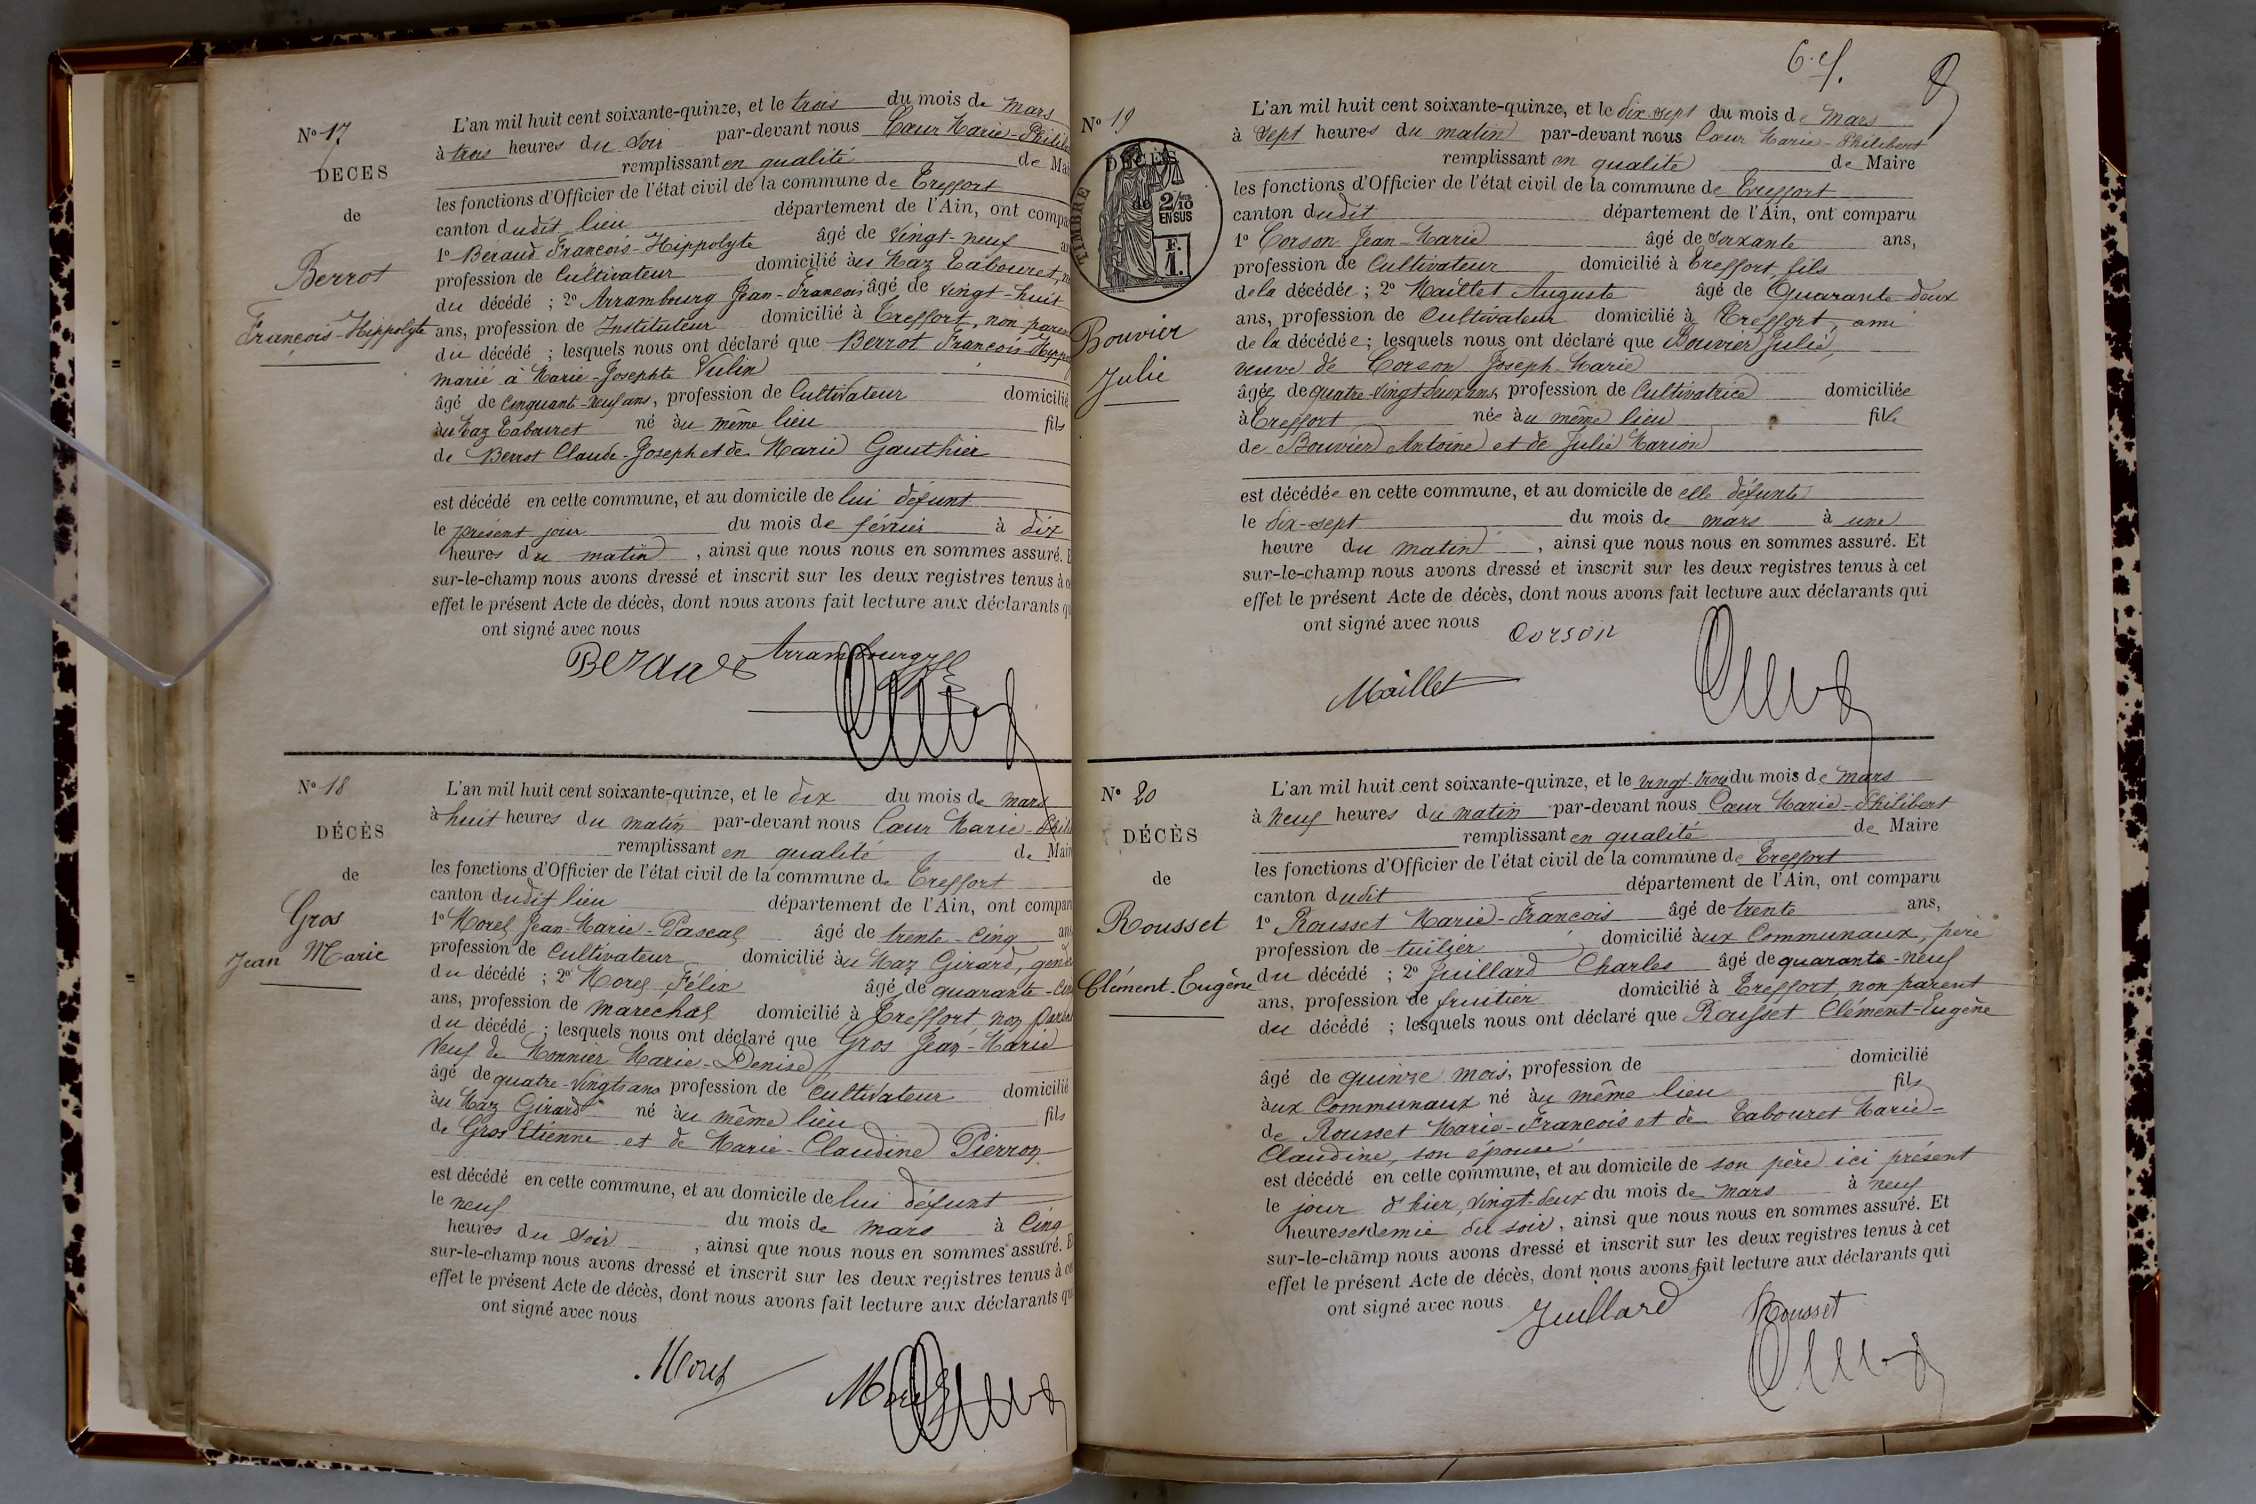 N° 17
DECES
de
Berrot
François-Hippolyte
L'an mil huit cent soixante-quinze, et le trois du mois de Mars
à trois heures du Soir par-devant nous Cœur Marie-Philib
remplissant en qualité de Mai
les fonctions d'Officier de l'état civil de la commune de Treffort
canton dudit lieu département de l'Ain, ont compa
1° Béraud François-Hippolyte âgé de Vingt-neuf an
profession de Cultivateur domicilié au Maz Tabouret,
du décédé ; 2° Arrambourg Jean-François âgé de vingt-huit
ans, profession de Instituteur domicilié à Treffort, non paren
du décédé ; lesquels nous ont déclaré que Berrot François Hippo
marié à Marie-Josephte Vulin
âgé de Cinquante-neuf ans, profession de Cultivateur domicilié
au Maz Tabouret né au même lieu fils
de Berrot Claude-Joseph et de Marie Gauthier
est décédé en cette commune, et au domicile de lui défunt
le présent jour du mois de février à dix
heures du matin, ainsi que nous nous en sommes assuré. E
sur-le-champ nous avons dressé et inscrit sur les deux registres tenus à ce
effet le présent Acte de décès, dont nous avons fait lecture aux déclarants qu
ont signé avec nous
Beraud Arrambourg
N° 18
DÉCÈS
de
Gros
Jean Marie
L'an mil huit cent soixante-quinze, et le dix du mois de mars
à huit heures du matin par-devant nous Cœur Marie-Phili
remplissant en qualité de Mair
les fonctions d'Officier de l'état civil de la commune de Treffort
canton dudit lieu département de l'Ain, ont compar
1° Morel Jean-Marie-Pascal âgé de trente-cinq ans
profession de Cultivateur domicilié au Maz Girard, gend
du décédé ; 2° Morel Félix âgé de quarante-cin
ans, profession de maréchal domicilié à Treffort, non paren
du décédé ; lesquels nous ont déclaré que Gros Jean-Marie
Veuf de Monnier Marie-Denise
âgé de quatre-vingts ans profession de Cultivateur domicilié
au Maz Girard né au même lieu fils
de Gros Etienne et de Marie-Claudine Pierron
est décédé en cette commune, et au domicile de lui défunt
le neuf du mois de mars à Cinq
heures du Soir, ainsi que nous nous en sommes assuré. E
sur-le-champ nous avons dressé et inscrit sur les deux registres tenus à ce
effet le présent Acte de décès, dont nous avons fait lecture aux déclarants qu
ont signé avec nous
Morel Morel
N° 19
DÉCÈS
de
TIMBRE
2/10
EN SUS
F.
1.
Bouvier
Julie
L'an mil huit cent soixante-quinze, et le dix-sept du mois de mars
à Sept heures du matin par-devant nous Cœur Marie-Philibert
remplissant en qualité de Maire
les fonctions d'Officier de l'état civil de la commune de Treffort
canton dudit département de l'Ain, ont comparu
1° Corson Jean-Marie âgé de soixante ans,
profession de Cultivateur domicilié à Treffort, fils
de la décédée ; 2° Maillet Auguste âgé de Quarante-deux
ans, profession de Cultivateur domicilié à Treffort, ami
de la décédée ; lesquels nous ont déclaré que Bouvier Julie,
veuve de Corson Joseph-Marie
âgée de quatre-vingt deux ans, profession de Cultivatrice domiciliée
à Treffort née au même lieu fille
de Bouvier Antoine et de Julie Marion
est décédée en cette commune, et au domicile de elle défunte
le dix-sept du mois de mars à une
heure du matin, ainsi que nous nous en sommes assuré. Et
sur-le-champ nous avons dressé et inscrit sur les deux registres tenus à cet
effet le présent Acte de décès, dont nous avons fait lecture aux déclarants qui
ont signé avec nous
Corson
Maillet
N° 20
DÉCÈS
de
Rousset
Clément-Eugène
L'an mil huit cent soixante-quinze, et le vingt-trois du mois de mars
à neuf heures du matin par-devant nous Cœur Marie-Philibert
remplissant en qualité de Maire
les fonctions d'Officier de l'état civil de la commune de Treffort
canton dudit département de l'Ain, ont comparu
1° Rousset Marie-François âgé de trente ans,
profession de tuilier domicilié aux Communaux, père
du décédé ; 2° Juillard Charles âgé de quarante-neuf
ans, profession de fruitier domicilié à Treffort, non parent
du décédé ; lesquels nous ont déclaré que Rousset Clément-Eugène
âgé de quinze mois, profession de domicilié
aux Communaux né au même lieu fils
de Rousset Marie-François et de Tabouret Marie-
Claudine, son épouse
est décédé en cette commune, et au domicile de son père ici présent
le jour d'hier, vingt-deux du mois de mars à neuf
heures et demie du soir, ainsi que nous nous en sommes assuré. Et
sur-le-champ nous avons dressé et inscrit sur les deux registres tenus à cet
effet le présent Acte de décès, dont nous avons fait lecture aux déclarants qui
ont signé avec nous
Juillard Rousset